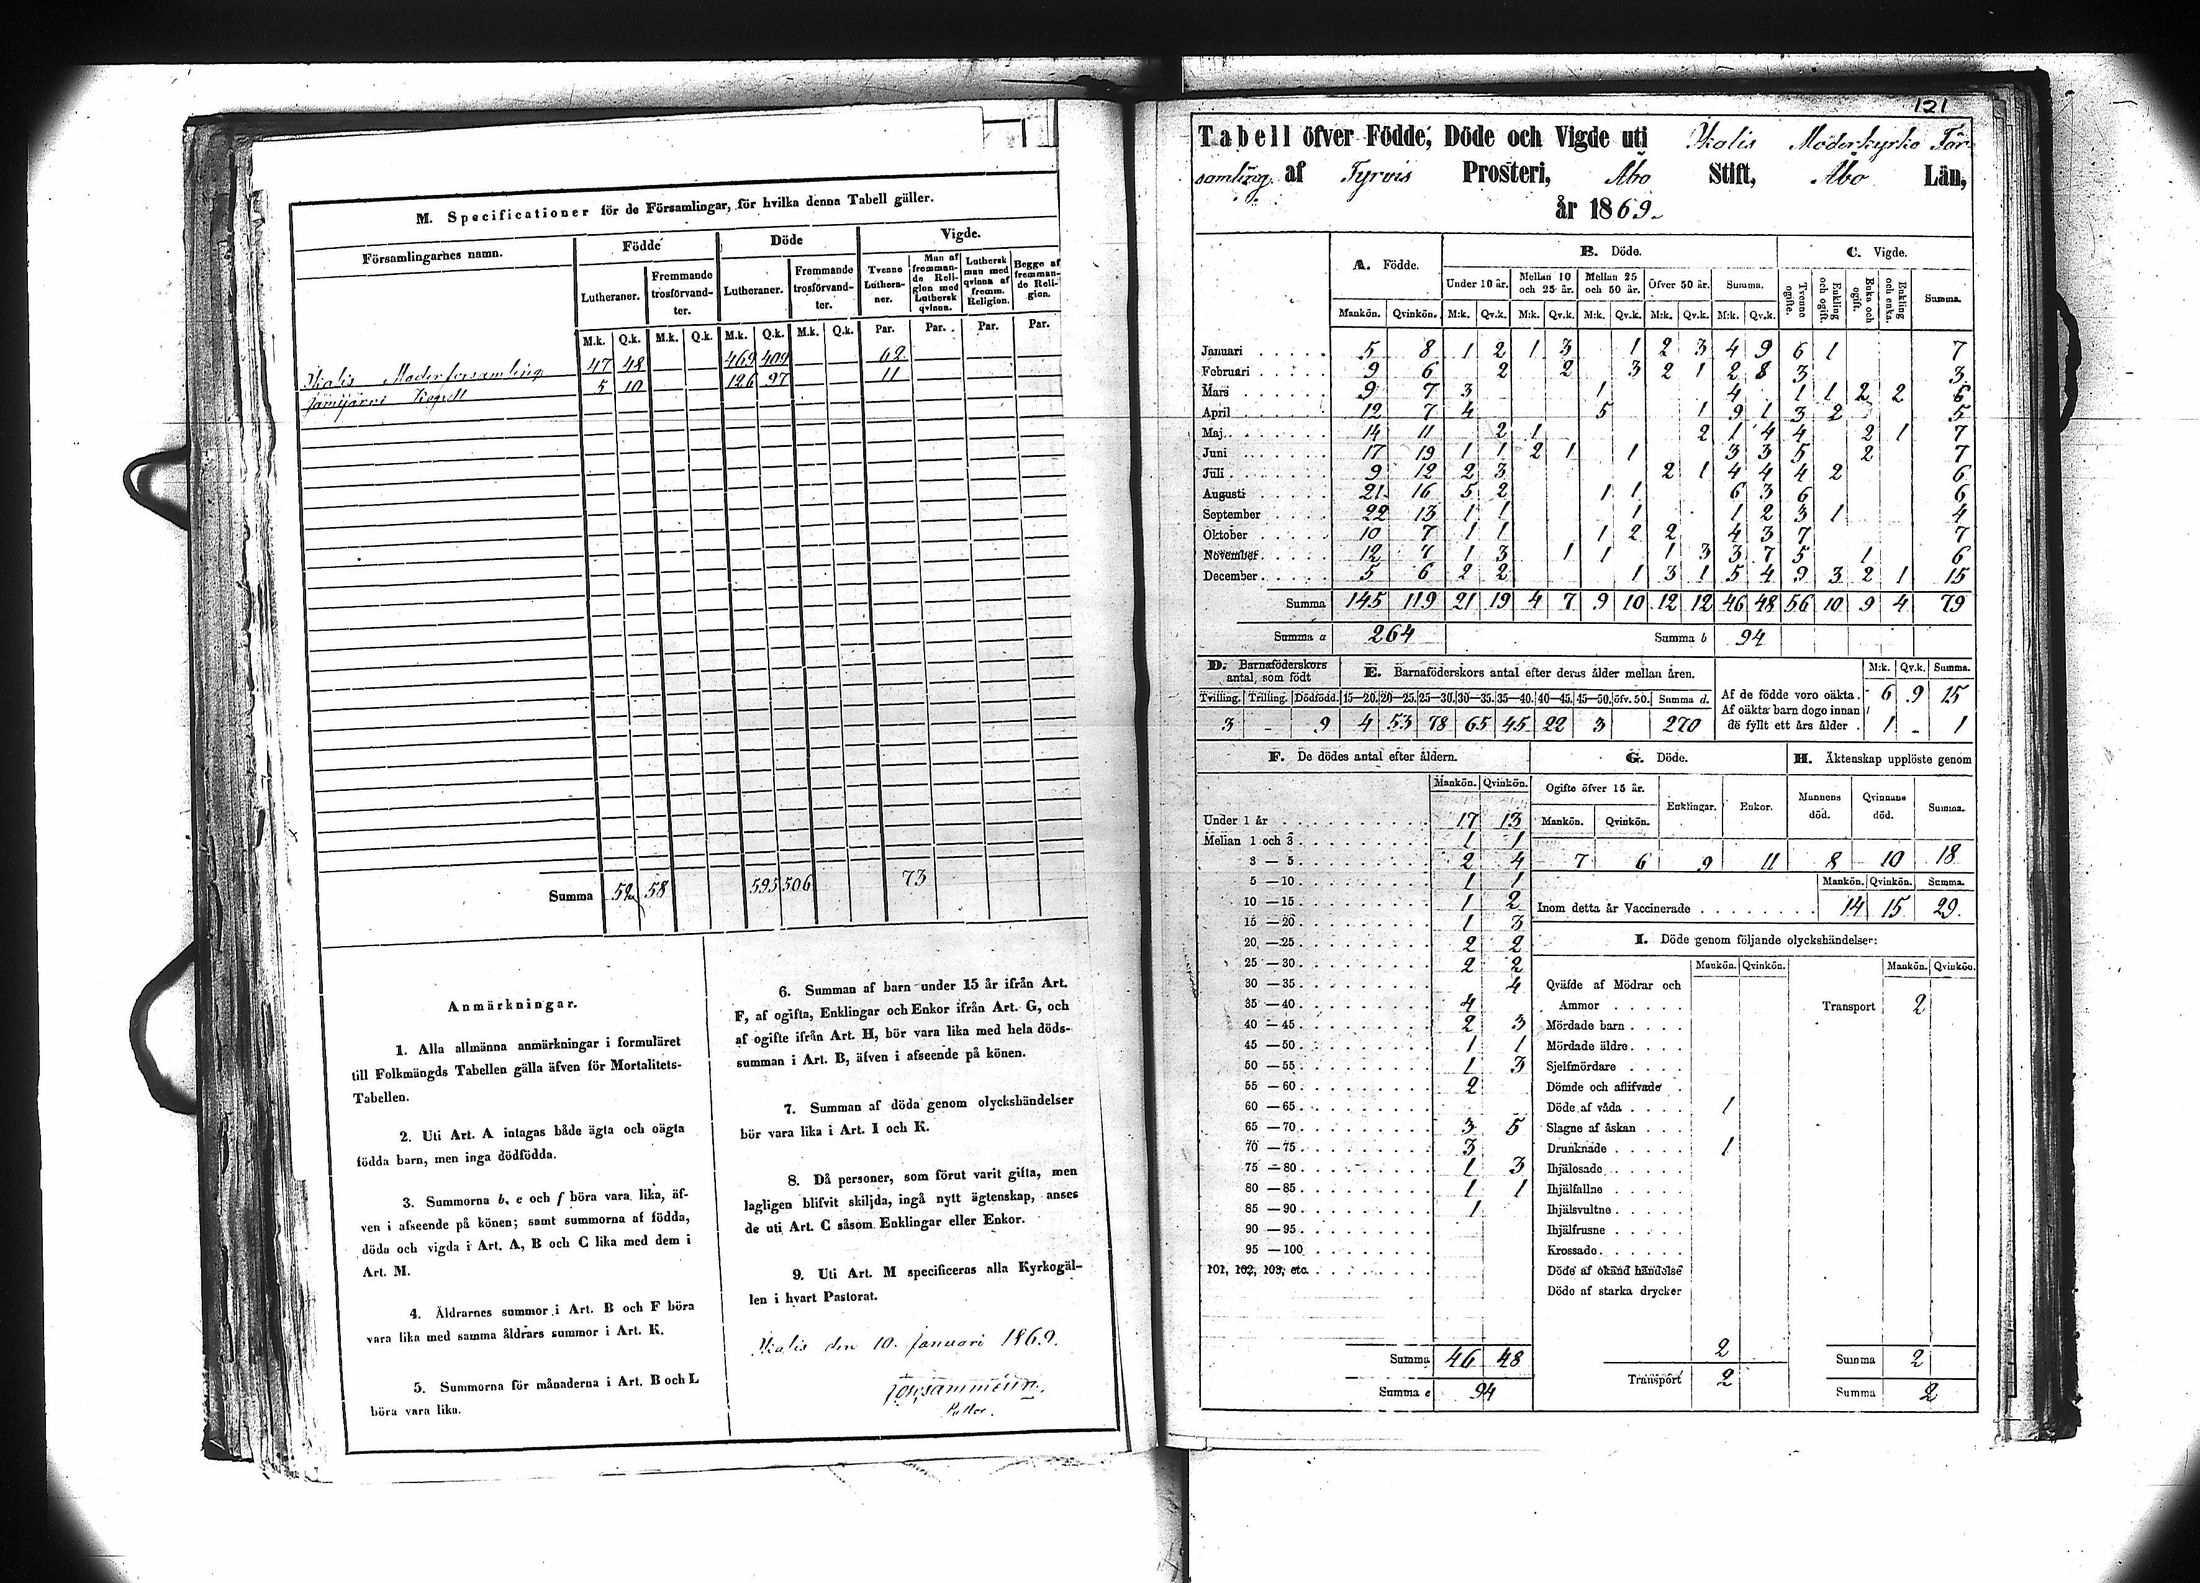 M. Specificationer för de Församlingar, för hvilka denna Tabell gäller.
Församlingarnes namn. Födde Döde Vigde.
Lutheraner. Fremmande trosförvandter. Lutheraner. Fremmande trosförvandter. Tvenne Lutheraner. Man af fremmande Religion med Luthersk qvinna. Luthersk man med qvinna af fremm. Religion. Begge af fremmande Religion.
M.k. Q.k. M.k. Q.k. M.k. Q.k. M.k. Q.k. Par. Par. Par. Par.
Ikalis Moderförsamling 47 48 469 409 62
Jämijärvi Kapell 5 10 126 97 11
Summa 52 58 595 506 73
Anmärkningar.
1. Alla allmänna anmärkningar i formuläret
till Folkmängds Tabellen gälla äfven för Mortalitets-
Tabellen.
2. Uti Art. A intagas både ägta och oägta
födda barn, men inga dödfödda.
3. Summorna b, e och f böra vara lika, äf-
ven i afseende på könen; samt summorna af födda,
döda och vigda i Art. A, B och C lika med dem i
Art. M.
4. Åldrarnes summor i Art. B och F böra
vara lika med samma åldrars summor i Art. K.
5. Summorna för månaderna i Art. B och L
böra vara lika.
6. Summan af barn under 15 år ifrån Art.
F, af ogifta, Enklingar och Enkor ifrån Art. G, och
af ogifte ifrån Art. H, bör vara lika med hela döds-
summan i Art. B, äfven i afseende på könen.
7. Summan af döda genom olyckshändelser
bör vara lika i Art. I och K.
8. Då personer, som förut varit gifta, men
lagligen blifvit skiljda, ingå nytt ägtenskap, anses
de uti Art. C såsom Enklingar eller Enkor.
9. Uti Art. M specificeras alla Kyrkogäl-
len i hvart Pastorat.
Ikalis den 10. Januari 1869.
121
Tabell öfver Födde, Döde och Vigde uti Ikalis Moderkyrko För-
samling af Tyrvis Prosteri, Åbo Stift, Åbo Län,
år 1869.
A. Födde. B. Döde. C. Vigde.
Under 10 år. Mellan 10 och 25 år. Mellan 25 och 50 år. Öfver 50 år. Summa. Tvenne ogifte. Enkling och ogift. Enka och ogift. Enkling och enka. Summa.
Mankön. Qvinkön. M.k. Qv.k. M.k. Qv.k. M.k. Qv.k. M.k. Qv.k. M.k. Qv.k.
Januari 5 8 1 2 1 3 1 2 3 4 9 6 1 7
Februari 9 6 2 2 3 2 1 2 8 3 3
Mars 9 7 3 1 4 1 1 2 2 6
April 12 7 4 5 1 9 1 3 2 5
Maj 14 11 2 1 2 1 4 4 2 1 7
Juni 17 19 1 1 2 1 1 3 3 5 2 7
Juli 9 12 2 3 2 1 4 4 4 2 6
Augusti 21 16 5 2 1 1 6 3 6 6
September 22 13 1 1 1 1 2 3 1 4
Oktober 10 7 1 1 1 2 2 4 3 7 7
November 12 7 1 3 1 1 1 3 3 7 5 1 6
December 5 6 2 2 1 3 1 5 4 9 3 2 1 15
Summa 145 119 21 19 4 7 9 10 12 12 46 48 56 10 9 4 79
Summa a 264 Summa b 94
D. Barnaföderskors antal, som födt E. Barnaföderskors antal efter deras ålder mellan åren. M:k. Qv.k. Summa.
Tvilling. Trilling. Dödfödd. 15—20. 20—25. 25—30. 30—35. 35—40. 40—45. 45—50. öfv. 50. Summa d.
3 - 9 4 53 78 65 45 22 3 270
Af de födde voro oäkta 6 9 15
Af oäkta barn dogo innan
de fyllt ett års ålder 1 - 1
F. De dödes antal efter åldern.
Mankön. Qvinkön.
Under 1 år 17 13
Mellan 1 och 3 1 1
3 — 5 2 4
5 — 10 1 1
10 — 15 1 2
15 — 20 1 3
20 — 25 2 2
25 — 30 2 2
30 — 35 4
35 — 40 4
40 — 45 2 3
45 — 50 1 1
50 — 55 1 3
55 — 60 2
60 — 65
65 — 70 3 5
70 — 75 3
75 — 80 1 3
80 — 85 1 1
85 — 90 1
90 — 95
95 — 100
101, 102, 103, etc.
Summa 46 48
Summa e 94
G. Döde. H. Äktenskap upplöste genom
Ogifte öfver 15 år. Enklingar. Enkor. Mannens död. Qvinnans död. Summa.
Mankön. Qvinkön.
7 6 9 11 8 10 18
Mankön. Qvinkön. Summa.
Inom detta år Vaccinerade 14 15 29.
I. Döde genom följande olyckshändelser:
Mankön. Qvinkön. Mankön. Qvinkön.
Qväfde af Mödrar och
Ammor Transport 2
Mördade barn
Mördade äldre
Sjelfmördare
Dömde och aflifvade
Döde af våda 1
Slagne af åskan
Drunknade 1
Ihjälosade
Ihjälfallne
Ihjälsvultne
Ihjälfrusne
Krossade
Döde af okänd händelse
Döde af starka drycker
2 Summa 2
Transport 2 Summa 2